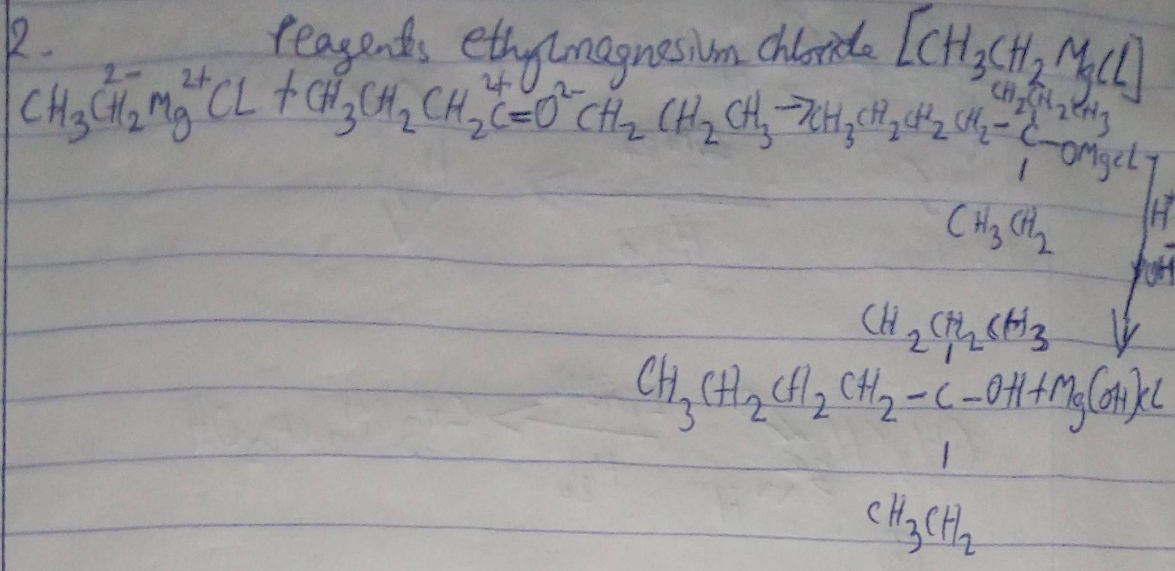 2. reagents ethylmagnesium chloride [CH3CH2MgCl]
CH3CH2^2-Mg^2+Cl + CH3CH2CH2C^2+=O^2-CH2 CH2 CH3 → CH3CH2CH2CH2-C-OMgCl
CH2CH2CH3
CH3CH2
H+
OH-
CH2CH2CH3
CH3CH2CH2CH2-C-OH+Mg(OH)Cl
CH3CH2